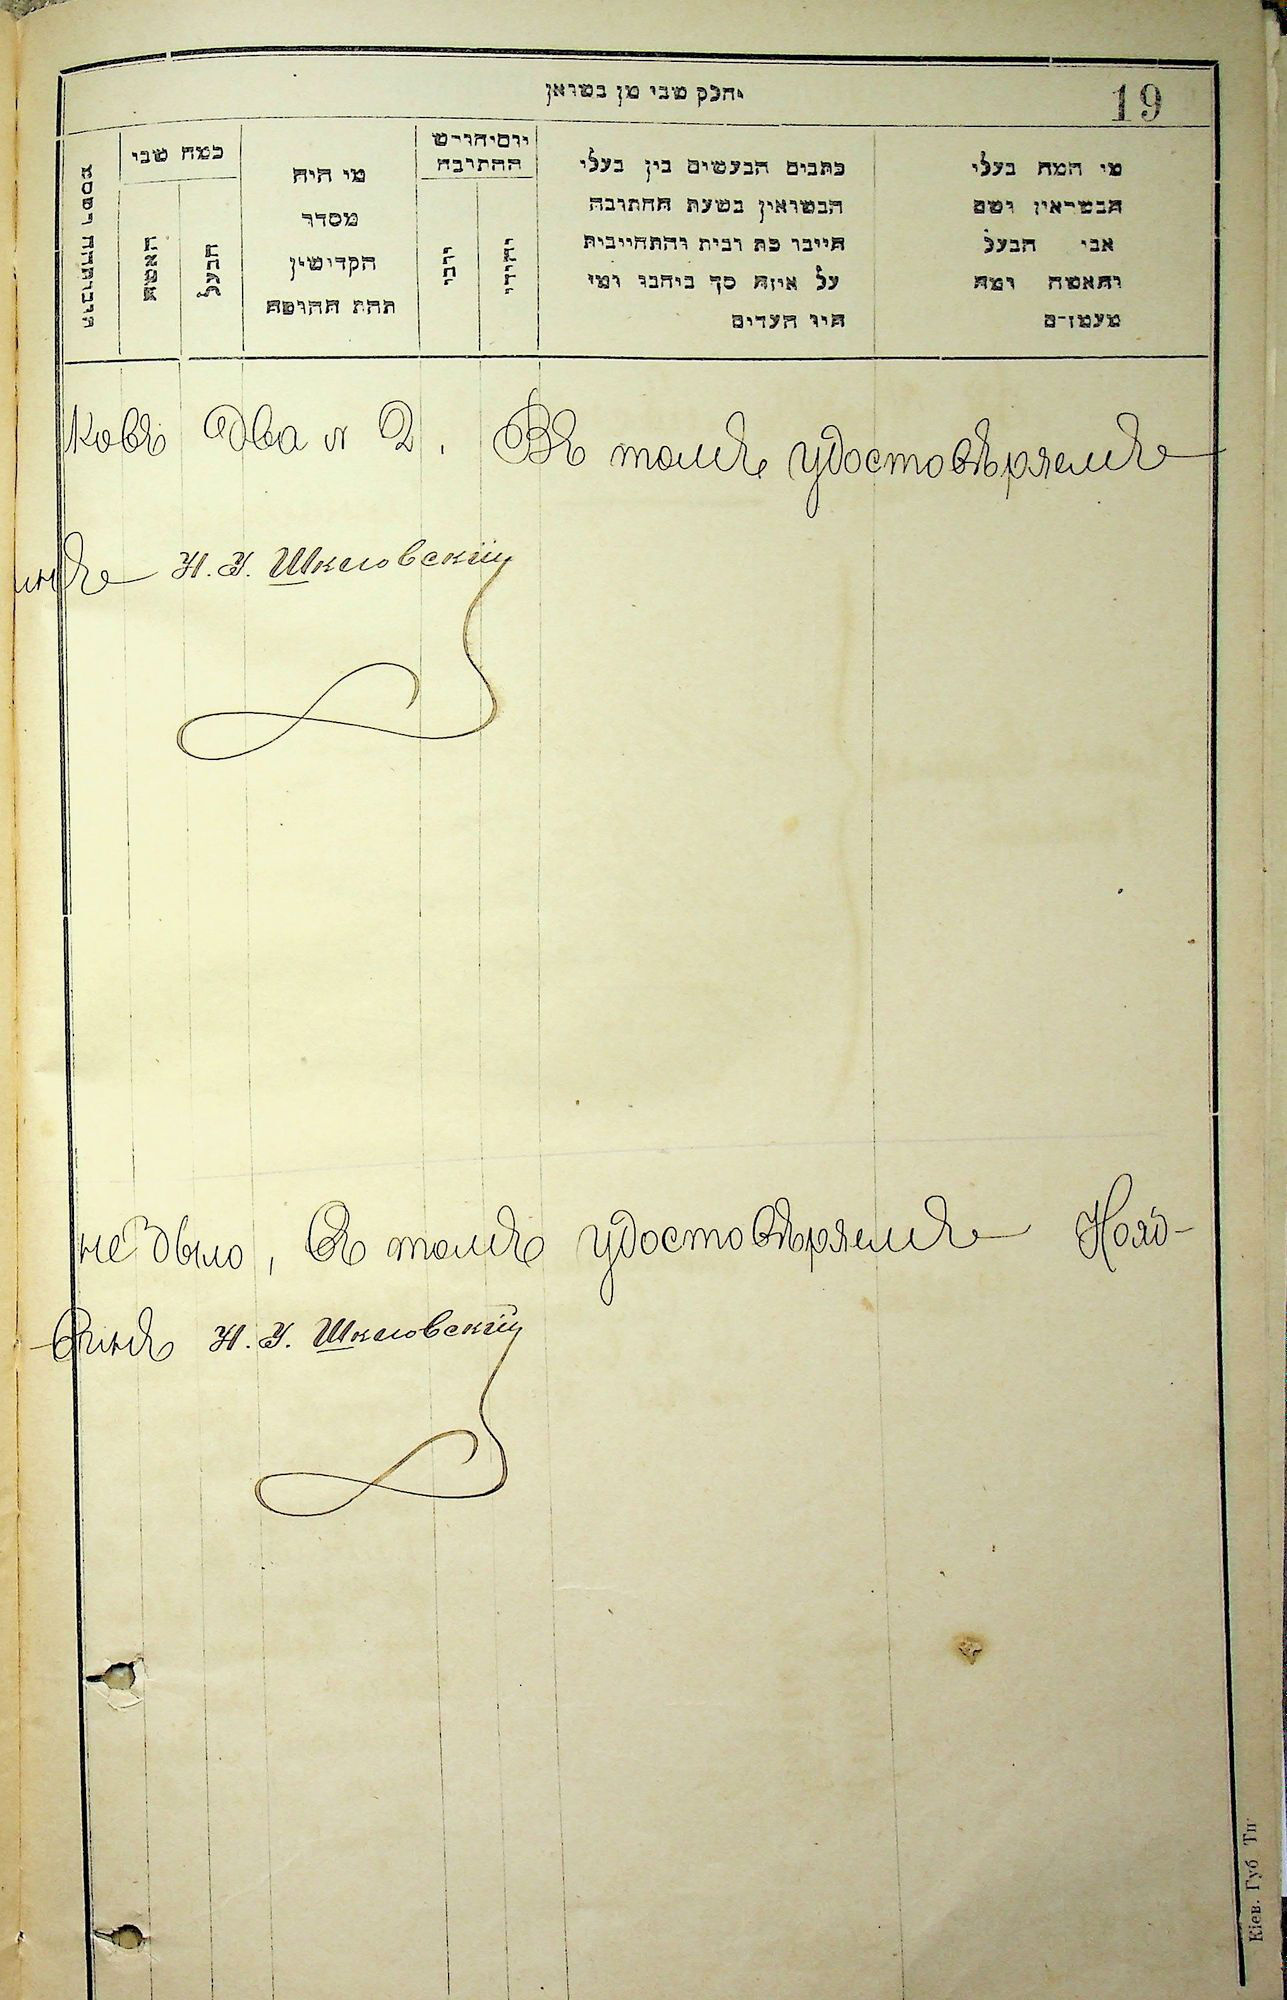 יחלק שני מן נשואן
19
מי המה בעלי
הנשואין ושם
אבי הבעל
והאשה ומה
מעמדם
כתבים הנעשים בין בעלי
הנשואין בשעת החתונה
היינו כת ובית והתחייבות
על איזה סך ניתנו ומי
היו העדים
יום והודש
החתונה
יהודי
מי היה
מסדר
הקדושין
תחת החופה
כמה שני
הבעל
האשה
ковъ два № 2. Въ томъ удостовѣряемъ
Н. У. Шкловскій
не было, въ томъ удостовѣряемъ Нояб-
Н. У. Шкловскій
Кіев. Губ Тп